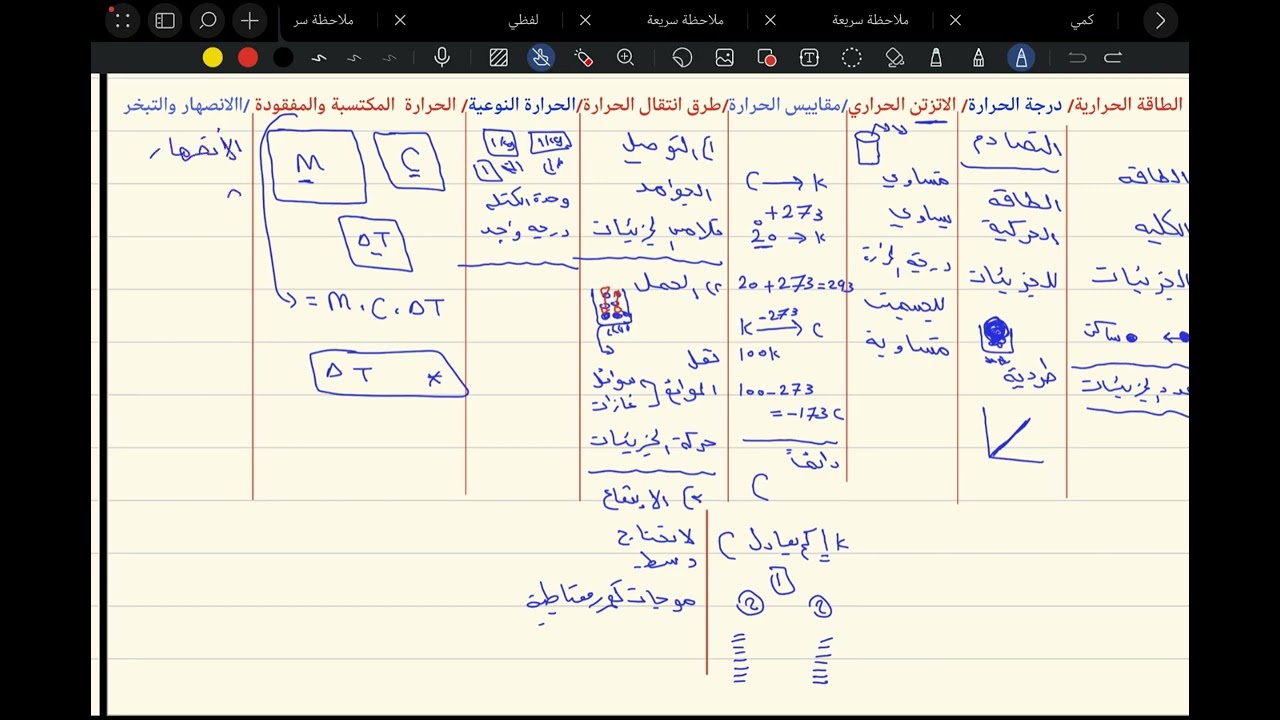 ملاحظة سر
لفظي
ملاحظة سريعة
ملاحظة سريعة
كمي
الطاقة الحرارية/ درجة الحرارة/ الاتزتن الحراري/مقاييس الحرارة/طرق انتقال الحرارة/الحرارة النوعية/ الحرارة المكتسبة والمفقودة /االانصهار والتبخر
الطاقة
الكليه
الجزيئات
ساكن
عدد الجزيئات
التصادم
الطاقة
الحركية
للجزيئات
طردية
متساوي
يساوي
درجة الحرارة
للجسمين
متساوية
C → K
+273
20 → K
20 + 273 = 293
K → C
-273
100K
100-273
= -173 C
دائماً
C
K إ كم يعادل C
1
2 2
1) التوصيل
الجوامد
تلامس الجزيئات
2) الحمل
نقل
الموائع
سوائل
غازات
حركة الجزيئات
3) الإشعاع
لا تحتاج
وسط
موجات كهرومغناطيسية
1kg 1kg
1
وحدة الكتلة
درجه واحد
M C
ΔT
= M. C. ΔT
ΔT *
الأنصهار